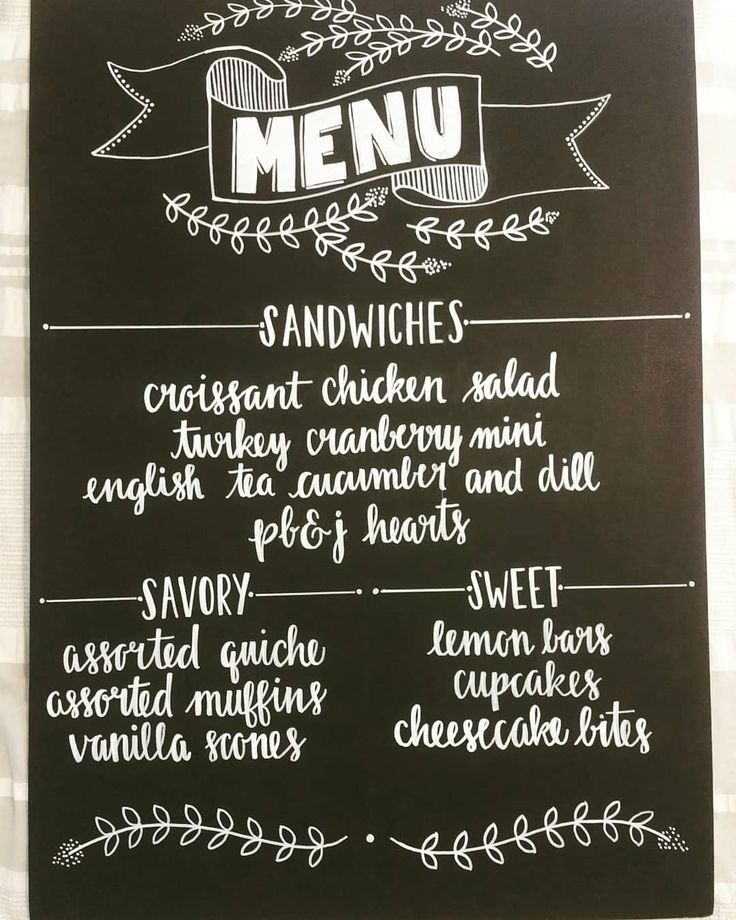 MENU
SANDWICHES
croissant chicken salad
turkey cranberry mini
english tea cucumber and dill
pb&j hearts
SAVORY
assorted quiche
assorted muffins
vanilla scones
SWEET
lemon bars
cupcakes
cheesecake bites